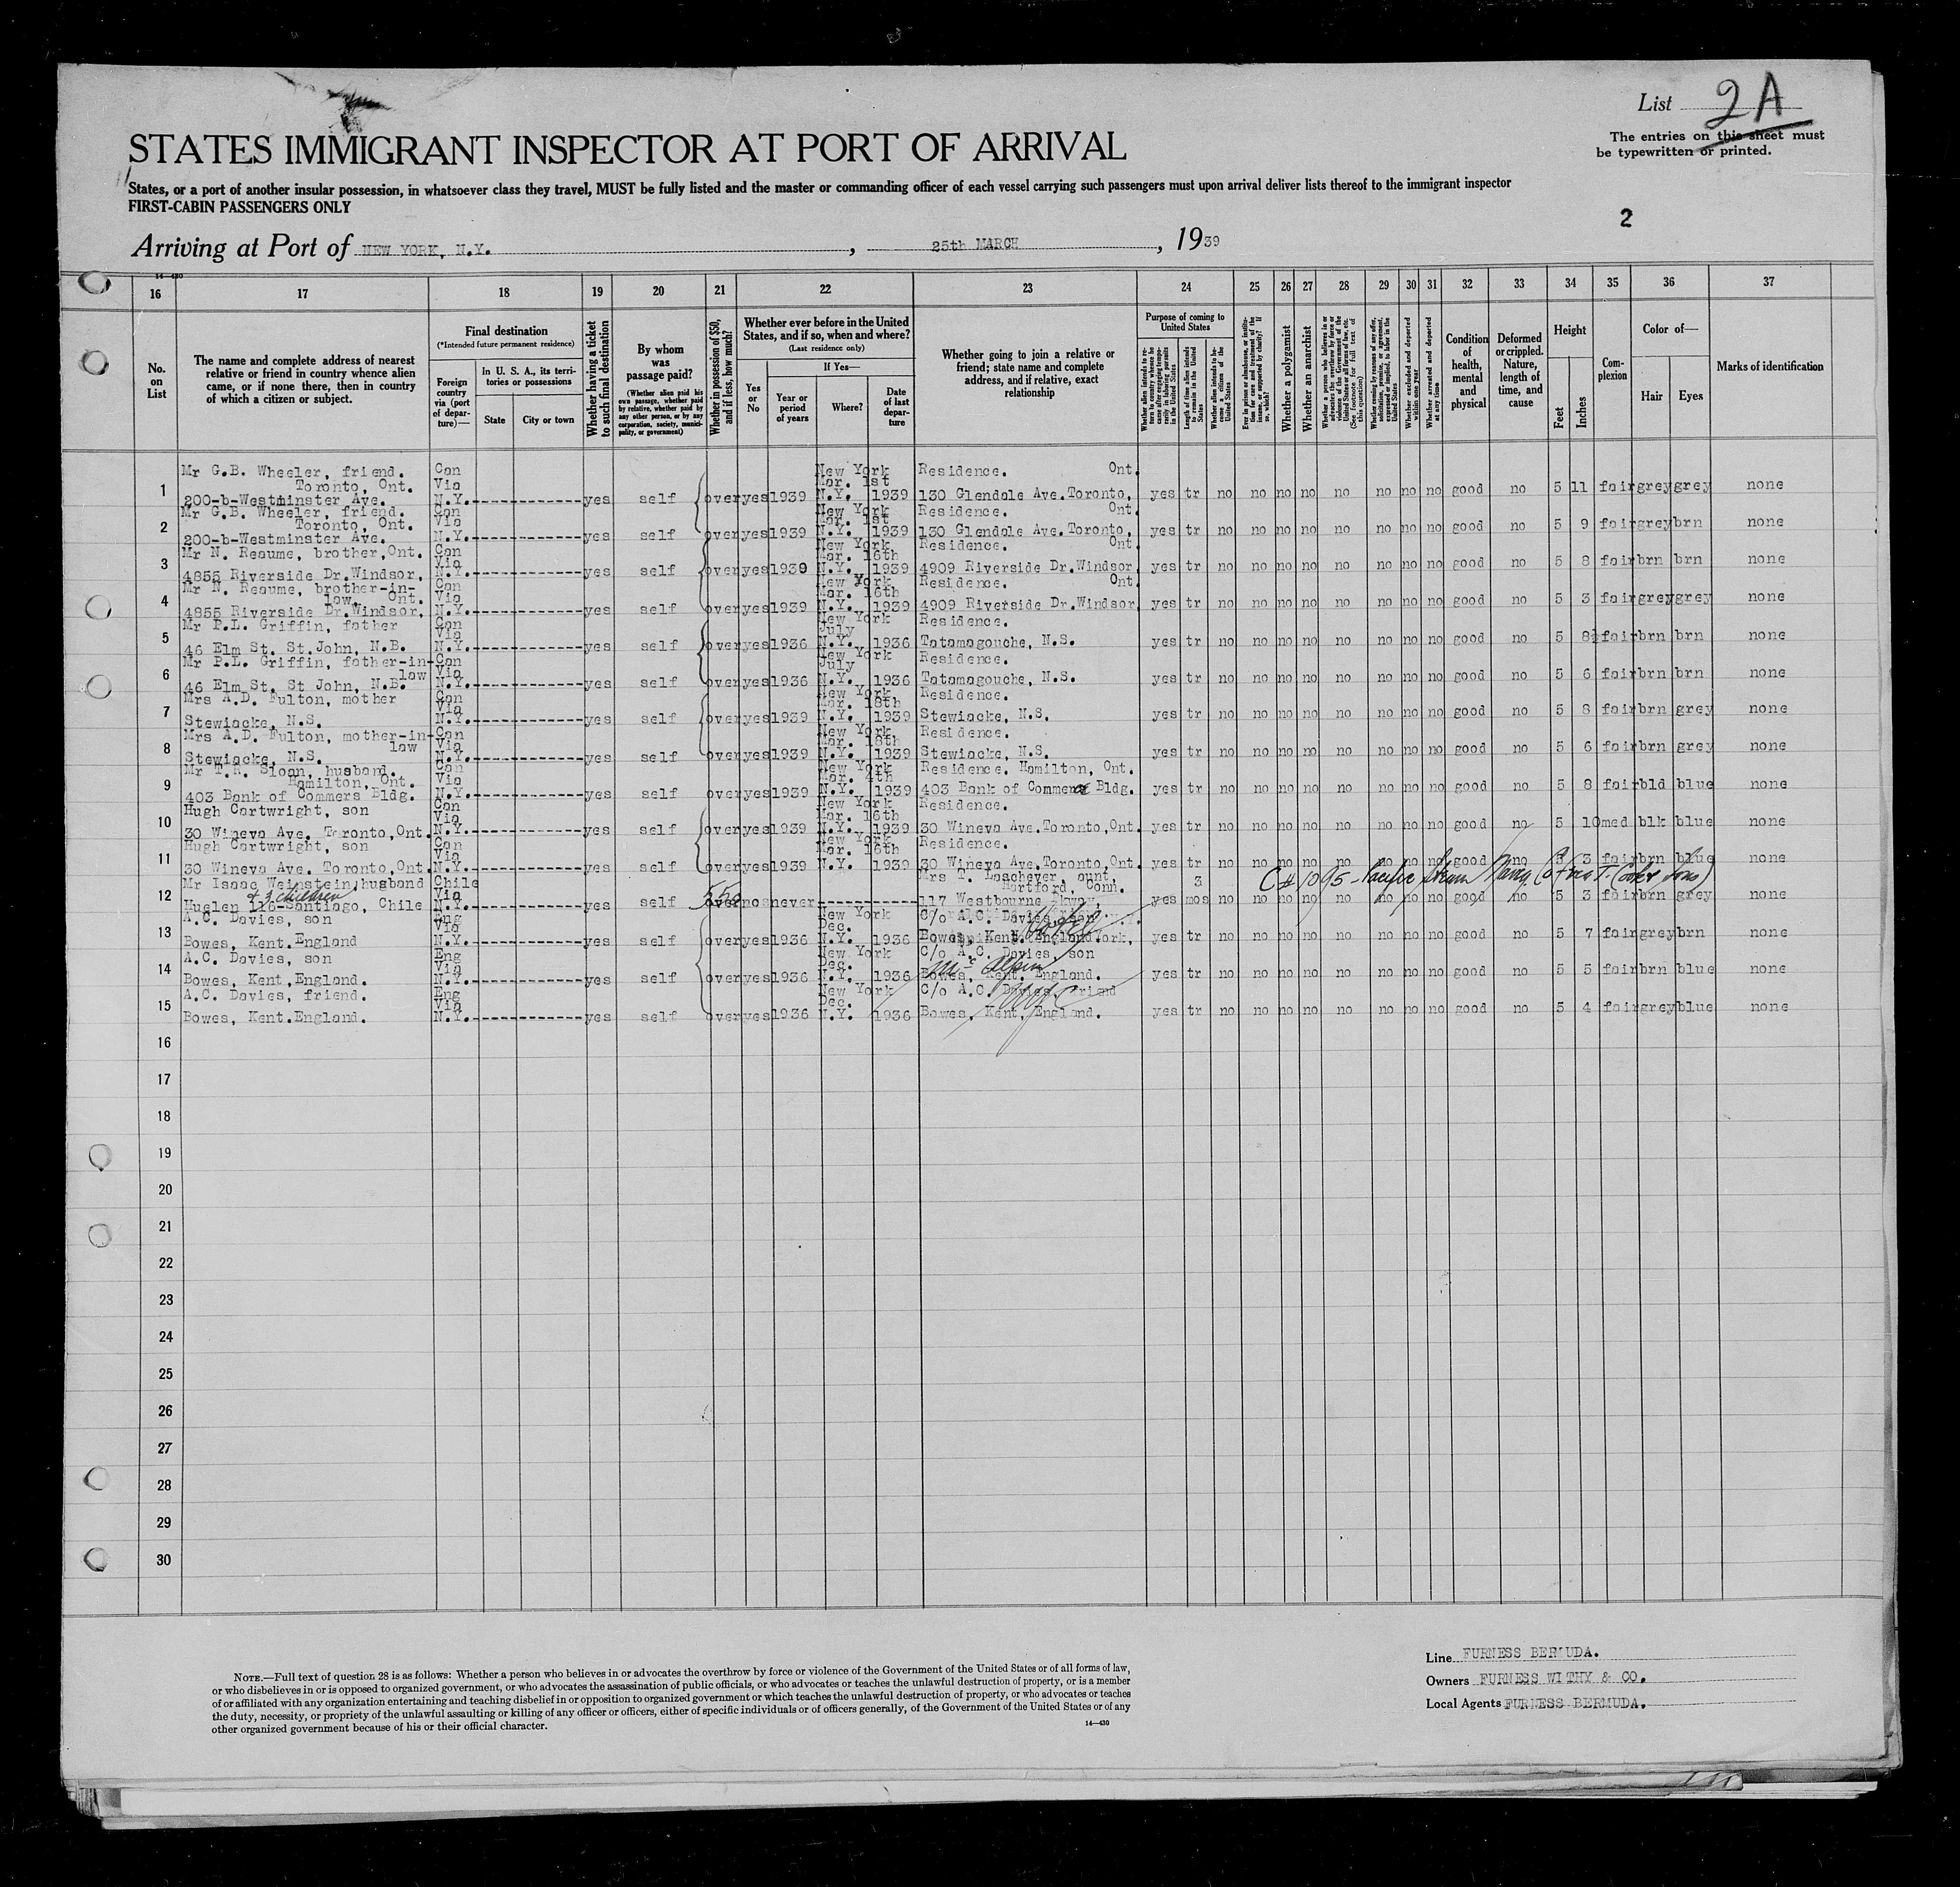 List 2A
The entries on this sheet must
be typewritten or printed.
STATES IMMIGRANT INSPECTOR AT PORT OF ARRIVAL
States, or a port of another insular possession, in whatsoever class they travel, MUST be fully listed and the master or commanding officer of each vessel carrying such passengers must upon arrival deliver lists thereof to the immigrant inspector
FIRST-CABIN PASSENGERS ONLY
2
Arriving at Port of NEW YORK, N.Y. , 25th MARCH , 1939
14—430
16 17 18 19 20 21 22 23 24 25 26 27 28 29 30 31 32 33 34 35 36 37
No. on List
The name and complete address of nearest relative or friend in country whence alien came, or if none there, then in country of which a citizen or subject.
Final destination
(*Intended future permanent residence)
Foreign country via (port of departure)—
In U. S. A., its territories or possessions
State
City or town
Whether having a ticket to such final destination
By whom was passage paid?
(Whether alien paid his own passage, whether paid by relative, whether paid by any other person, or by any corporation, society, municipality, or government)
Whether in possession of $50, and if less, how much?
Whether ever before in the United States, and if so, when and where?
(Last residence only)
Yes or No
If Yes—
Year or period of years
Where?
Date of last departure
Whether going to join a relative or friend; state name and complete address, and if relative, exact relationship
Purpose of coming to United States
Whether alien intends to return to country whence he came after engaging temporarily in laboring pursuits in the United States
Length of time alien intends to remain in the United States
Whether alien intends to become a citizen of the United States
Ever in prison or almshouse, or institution for care and treatment of the insane, or supported by charity? If so, which?
Whether a polygamist
Whether an anarchist
Whether a person who believes in or advocates the overthrow by force or violence of the Government of the United States or all forms of law, etc. (See footnote for full text of this question)
Whether coming by reason of any offer, solicitation, promise, or agreement, expressed or implied, to labor in the United States
Whether excluded and deported within one year
Whether arrested and deported at any time
Condition of health, mental and physical
Deformed or crippled. Nature, length of time, and cause
Height
Feet
Inches
Complexion
Color of—
Hair
Eyes
Marks of identification
1 Mr G.B. Wheeler, friend. Toronto, Ont. 200-b-Westminster Ave. Can Via N.Y. yes self over yes 1939 New York N.Y. Mar. 1st 1939 Residence. Ont. 130 Glendale Ave.Toronto, yes tr no no no no no no no no good no 5 11 fair grey grey none
2 Mr G.B. Wheeler, friend. Toronto, Ont. 200-b-Westminster Ave. Can Via N.Y. yes self over yes 1939 New York N.Y. Mar. 1st 1939 Residence. Ont. 130 Glendale Ave.Toronto, yes tr no no no no no no no no good no 5 9 fair grey brn none
3 Mr N. Reaume, brother,Ont. 4855 Riverside Dr.Windsor, Can Via N.Y. yes self over yes 1939 New York N.Y. Mar. 16th 1939 Residence. Ont 4909 Riverside Dr.Windsor yes tr no no no no no no no no good no 5 8 fair brn brn none
4 Mr N. Reaume, brother-in-law, Ont. 4855 Riverside Dr.Windsor, Can Via N.Y. yes self over yes 1939 New York N.Y. Mar. 16th 1939 Residence. Ont 4909 Riverside Dr.Windsor yes tr no no no no no no no no good no 5 3 fair grey grey none
5 Mr P.L. Griffin, father 46 Elm St. St.John, N.B. Can Via N.Y. yes self over yes 1936 New York N.Y. July 1936 Residence. Tatamagouche, N.S. yes tr no no no no no no no no good no 5 8½ fair brn brn none
6 Mr P.L. Griffin, father-in-law 46 Elm St. St John, N.B. Can Via N.Y. yes self over yes 1936 New York N.Y. July 1936 Residence. Tatamagouche, N.S. yes tr no no no no no no no no good no 5 6 fair brn brn none
7 Mrs A.D. Fulton, mother Stewiacke, N.S. Can Via N.Y. yes self over yes 1939 New York N.Y. Mar. 18th 1939 Residence. Stewiacke, N.S. yes tr no no no no no no no no good no 5 8 fair brn grey none
8 Mrs A.D. Fulton, mother-in-law Stewiacke, N.S. Can Via N.Y. yes self over yes 1939 New York N.Y. Mar. 18th 1939 Residence. Stewiacke, N.S. yes tr no no no no no no no no good no 5 6 fair brn grey none
9 Mr T.R. Sloan, husband. Hamilton, Ont. 403 Bank of Commers Bldg. Can Via N.Y. yes self over yes 1939 New York N.Y. Mar. 4th 1939 Residence. Hamilton, Ont. 403 Bank of Commerce Bldg. yes tr no no no no no no no no good no 5 8 fair bld blue none
10 Hugh Cartwright, son 30 Wineva Ave. Toronto,Ont. Can Via N.Y. yes self over yes 1939 New York N.Y. Mar. 16th 1939 Residence. 30 Wineva Ave.Toronto,Ont. yes tr no no no no no no no no good no 5 10 med blk blue none
11 Hugh Cartwright, son 30 Wineva Ave. Toronto,Ont. Can Via N.Y. yes self over yes 1939 New York N.Y. Mar. 16th 1939 Residence. 30 Wineva Ave.Toronto,Ont. yes tr no no no no no no no no good no 5 3 fair brn blue none
C# 1095 - Pacific Steam Navig Co
12 Mr Isaac Weinstein,husband & 3 children Huelen 116-Santiago, Chile Chile Via N.Y. yes self over no never Mrs T. Laschever, aunt, Hartford, Conn. 117 Westbourne Pkway, yes 3 mos no no no no no no no no good no 5 3 fair brn grey none
13 A.C. Davies, son Bowes, Kent.England Eng Via N.Y. yes self over yes 1936 New York N.Y. Dec. 1936 C/o A.C. Davies, Bowes, Kent. England yes tr no no no no no no no no good no 5 7 fair grey brn none
Hotel
14 A.C. Davies, son Bowes, Kent,England. Eng Via N.Y. yes self over yes 1936 New York N.Y. Dec. 1936 C/o A.C. Davies, son Bowes, Kent. England. yes tr no no no no no no no no good no 5 5 fair brn blue none
McAlpin
15 A.C. Davies, friend. Bowes, Kent.England. Eng Via N.Y. yes self over yes 1936 New York N.Y. Dec. 1936 C/o A.C. Davies, friend Bowes, Kent, England. yes tr no no no no no no no no good no 5 4 fair grey blue none
NYC
16
17
18
19
20
21
22
23
24
25
26
27
28
29
30
NOTE.—Full text of question 28 is as follows: Whether a person who believes in or advocates the overthrow by force or violence of the Government of the United States or of all forms of law,
or who disbelieves in or is opposed to organized government, or who advocates the assassination of public officials, or who advocates or teaches the unlawful destruction of property, or is a member
of or affiliated with any organization entertaining and teaching disbelief in or opposition to organized government or which teaches the unlawful destruction of property, or who advocates or teaches
the duty, necessity, or propriety of the unlawful assaulting or killing of any officer or officers, either of specific individuals or of officers generally, of the Government of the United States or of any
other organized government because of his or their official character.
14—430
Line FURNESS BERMUDA.
Owners FURNESS WITHY & CO.
Local Agents FURNESS BERMUDA.